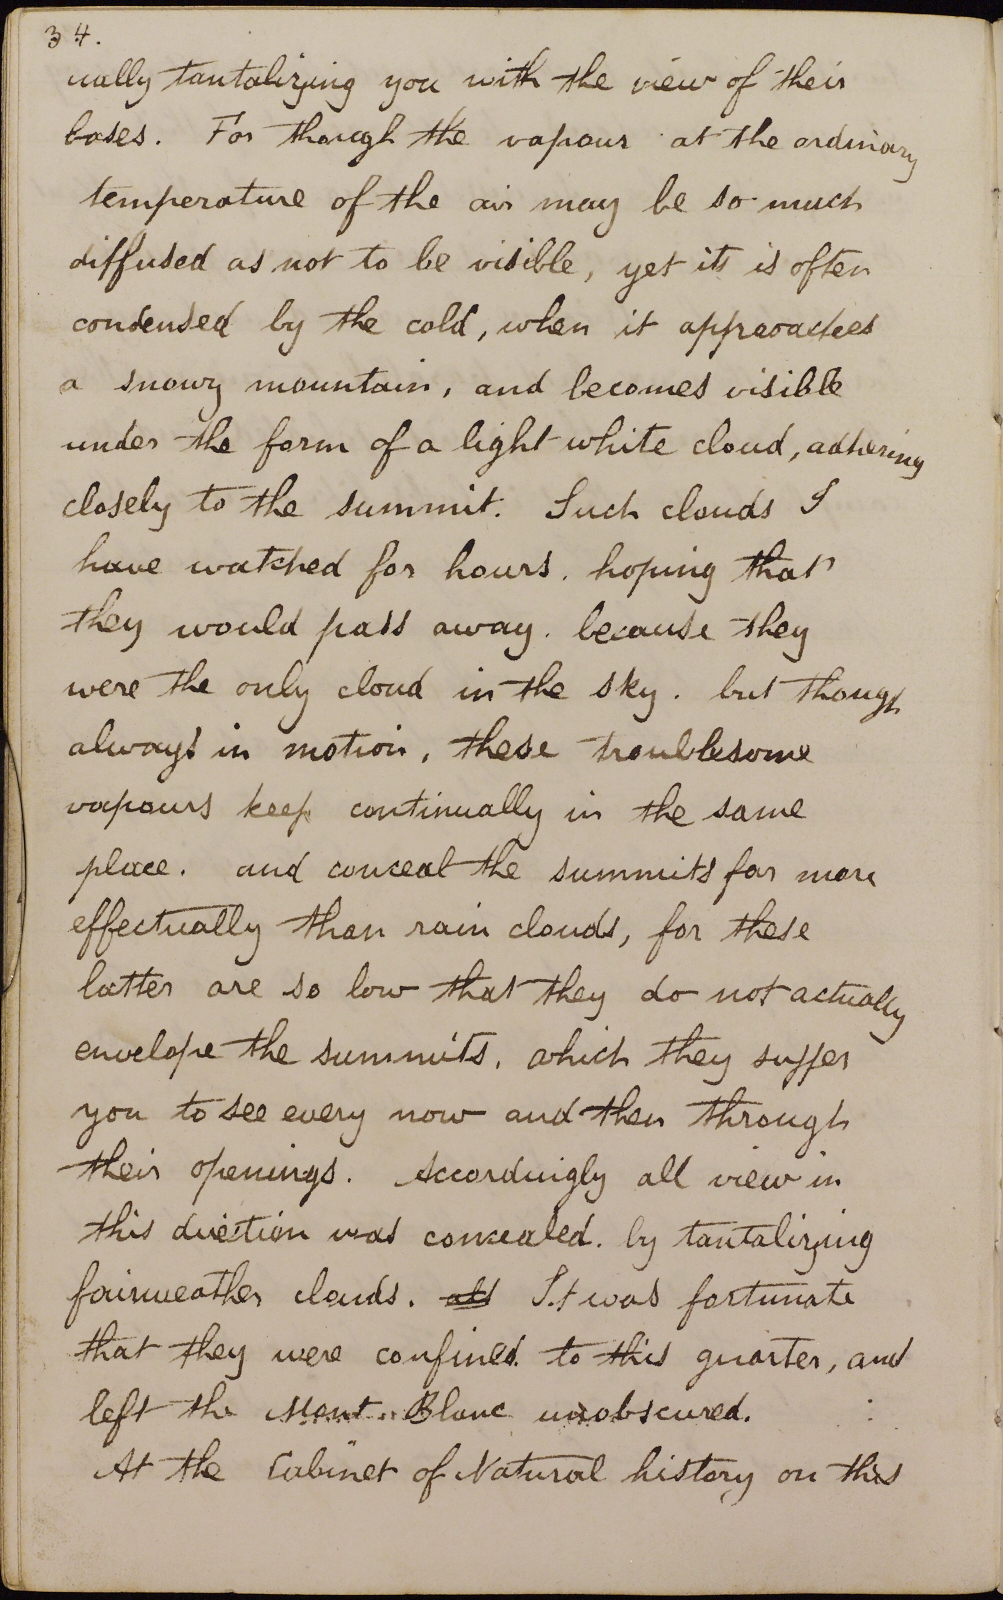 34.
ually tantalizing you with the view of their
bases. For though the vapour at the ordinary
temperature of the air may be so much
diffused as not to be visible, yet its is often
condensed by the cold, when it approaches
a snowy mountain, and becomes visible
under the form of a light white cloud, adhering
closely to the summit. Such clouds I
have watched for hours. hoping that
they would pass away. because they
were the only cloud in the sky. but though
always in motion, these troublesome
vapours keep continually in the same
place. and conceal the summits far more
effectually than rain clouds, for these
latter are so low that they do not actually
envelope the summits. which they suffer
you to see every now and then through
their openings. Accordingly all view in
this direction was concealed. by tantalizing
fairweather clouds. It was fortunate
that they were confined to this quarter, and
left the Mont Blanc unobscured.
At the Cabinet of Natural history on this